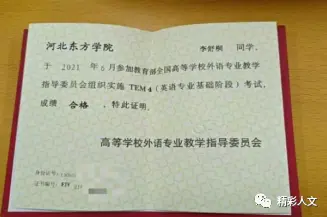 河北东方学院 李舒桐 同学,
于 2021 年 6 月参加教育部全国高等学校外语专业教学
指导委员会组织实施 TEM 4 (英语专业基础阶段) 考试,
成绩 合格 , 特此证明.
高等学校外语专业教学指导委员会
身份证号:
证书编号:
精彩人文